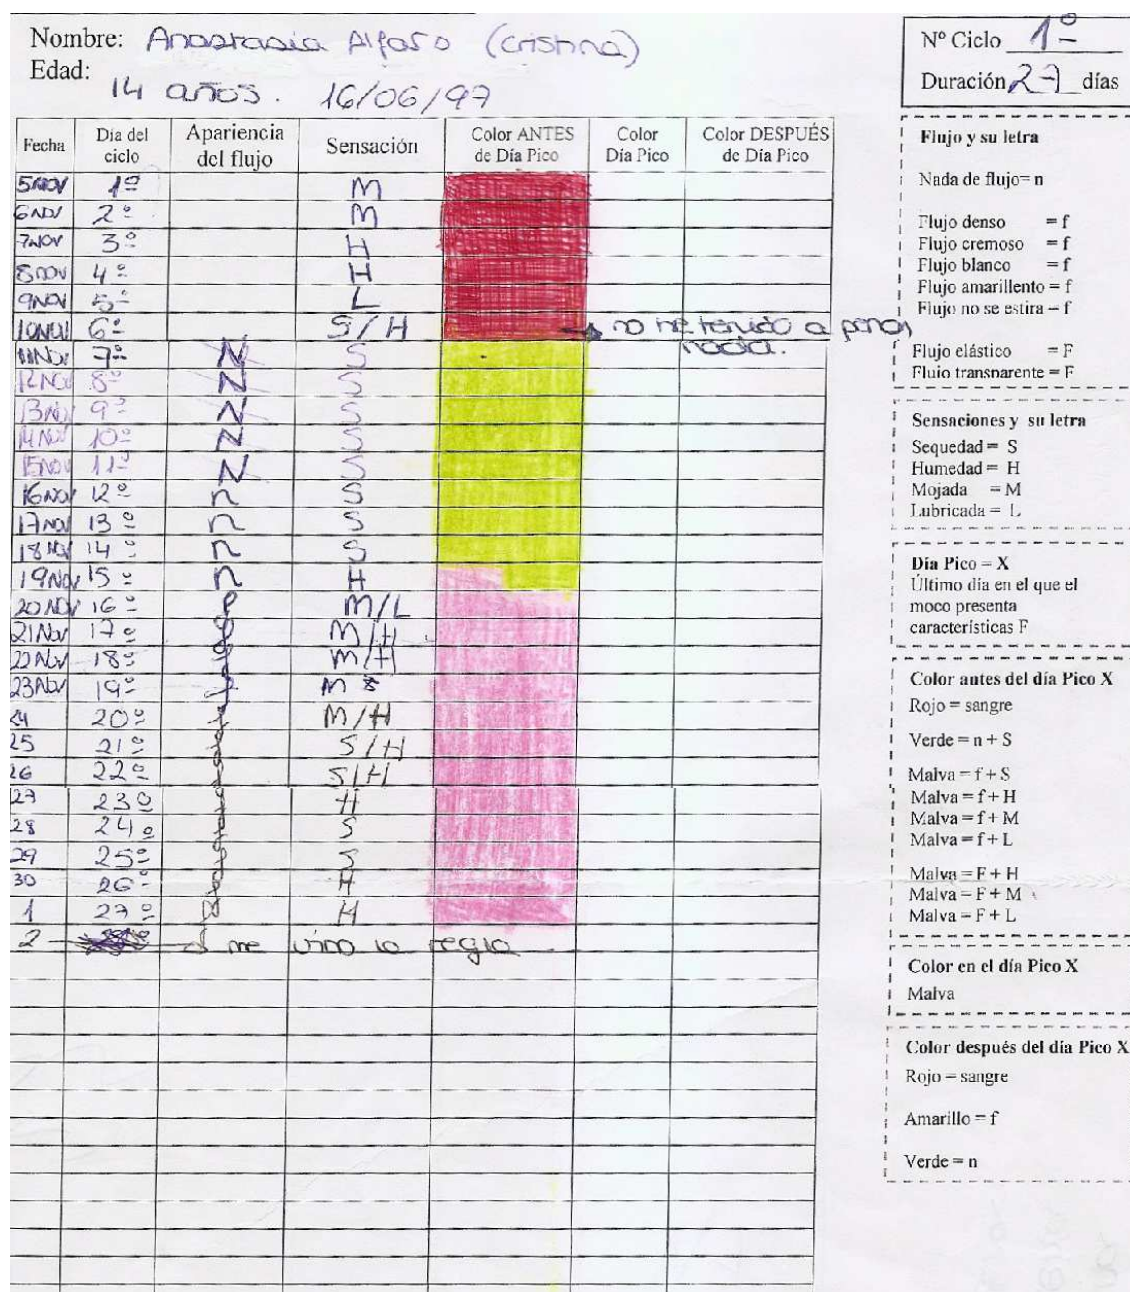 Nombre: Anastasia Alfaro (Cristina)
Edad: 14 años. 16/06/97
Nº Ciclo 1º
Duración 27 días
Fecha Día del ciclo Apariencia del flujo Sensación Color ANTES de Día Pico Color Día Pico Color DESPUÉS de Día Pico
5 NOV 1º M
6 NOV 2º M
7 NOV 3º H
8 NOV 4º H
9 NOV 5º L
10 NOV 6º S/H no he tenido a penas nada.
11 NOV 7º N S
12 NOV 8º N S
13 NOV 9º N S
14 NOV 10º N S
15 NOV 11º N S
16 NOV 12º n S
17 NOV 13º n S
18 NOV 14º n S
19 NOV 15º n H
20 NOV 16º M/L
21 Nov 17º M/H
22 Nov 18º M/H
23 Nov 19º M
24 20º M/H
25 21º S/H
26 22º S/H
27 23º H
28 24º S
29 25º S
30 26º H
1 27º H
2 me vino la regla
Flujo y su letra
Nada de flujo= n
Flujo denso = f
Flujo cremoso = f
Flujo blanco = f
Flujo amarillento = f
Flujo no se estira = f
Flujo elástico = F
Flujo transparente = F
Sensaciones y su letra
Sequedad = S
Humedad = H
Mojada = M
Lubricada = L
Día Pico = X
Último día en el que el
moco presenta
características F
Color antes del día Pico X
Rojo = sangre
Verde = n + S
Malva = f + S
Malva = f + H
Malva = f + M
Malva = f + L
Malva = F + H
Malva = F + M
Malva = F + L
Color en el día Pico X
Malva
Color después del día Pico X
Rojo = sangre
Amarillo = f
Verde = n